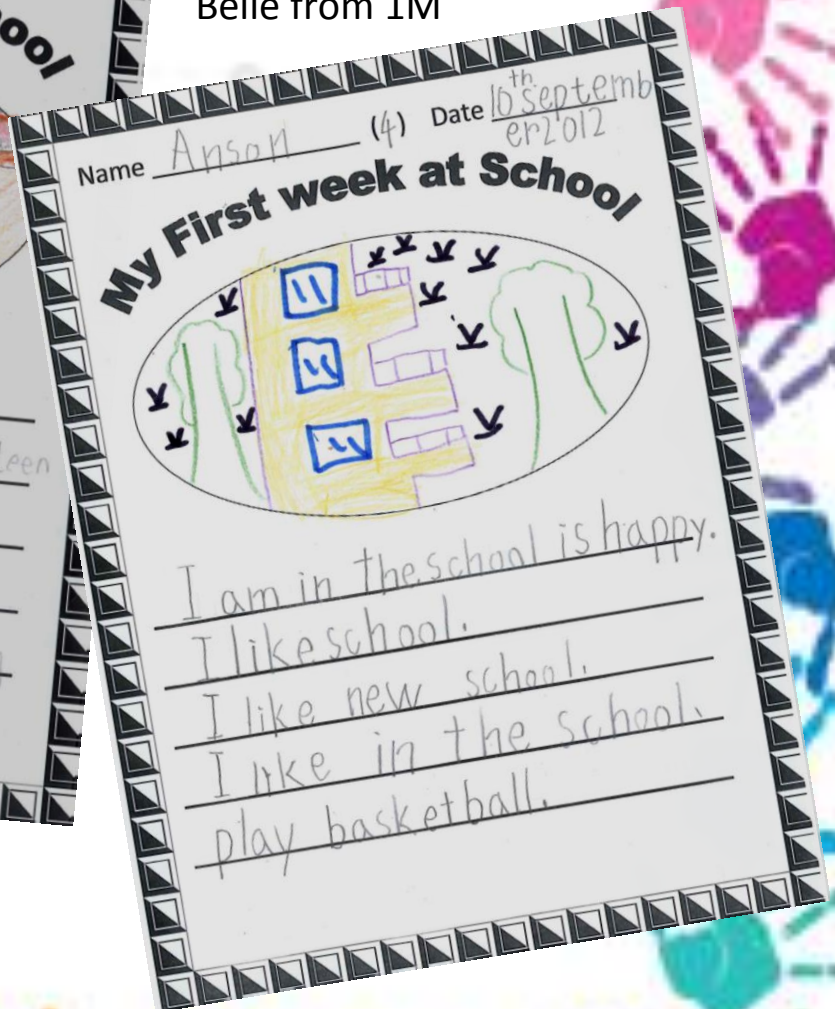 Belle from 1M
ool
Name Anson (4) Date 10th Septemb
er 2012
My First week at School
een
I am in the school is happy.
I like school.
I like new school.
I like in the school.
play basketball.